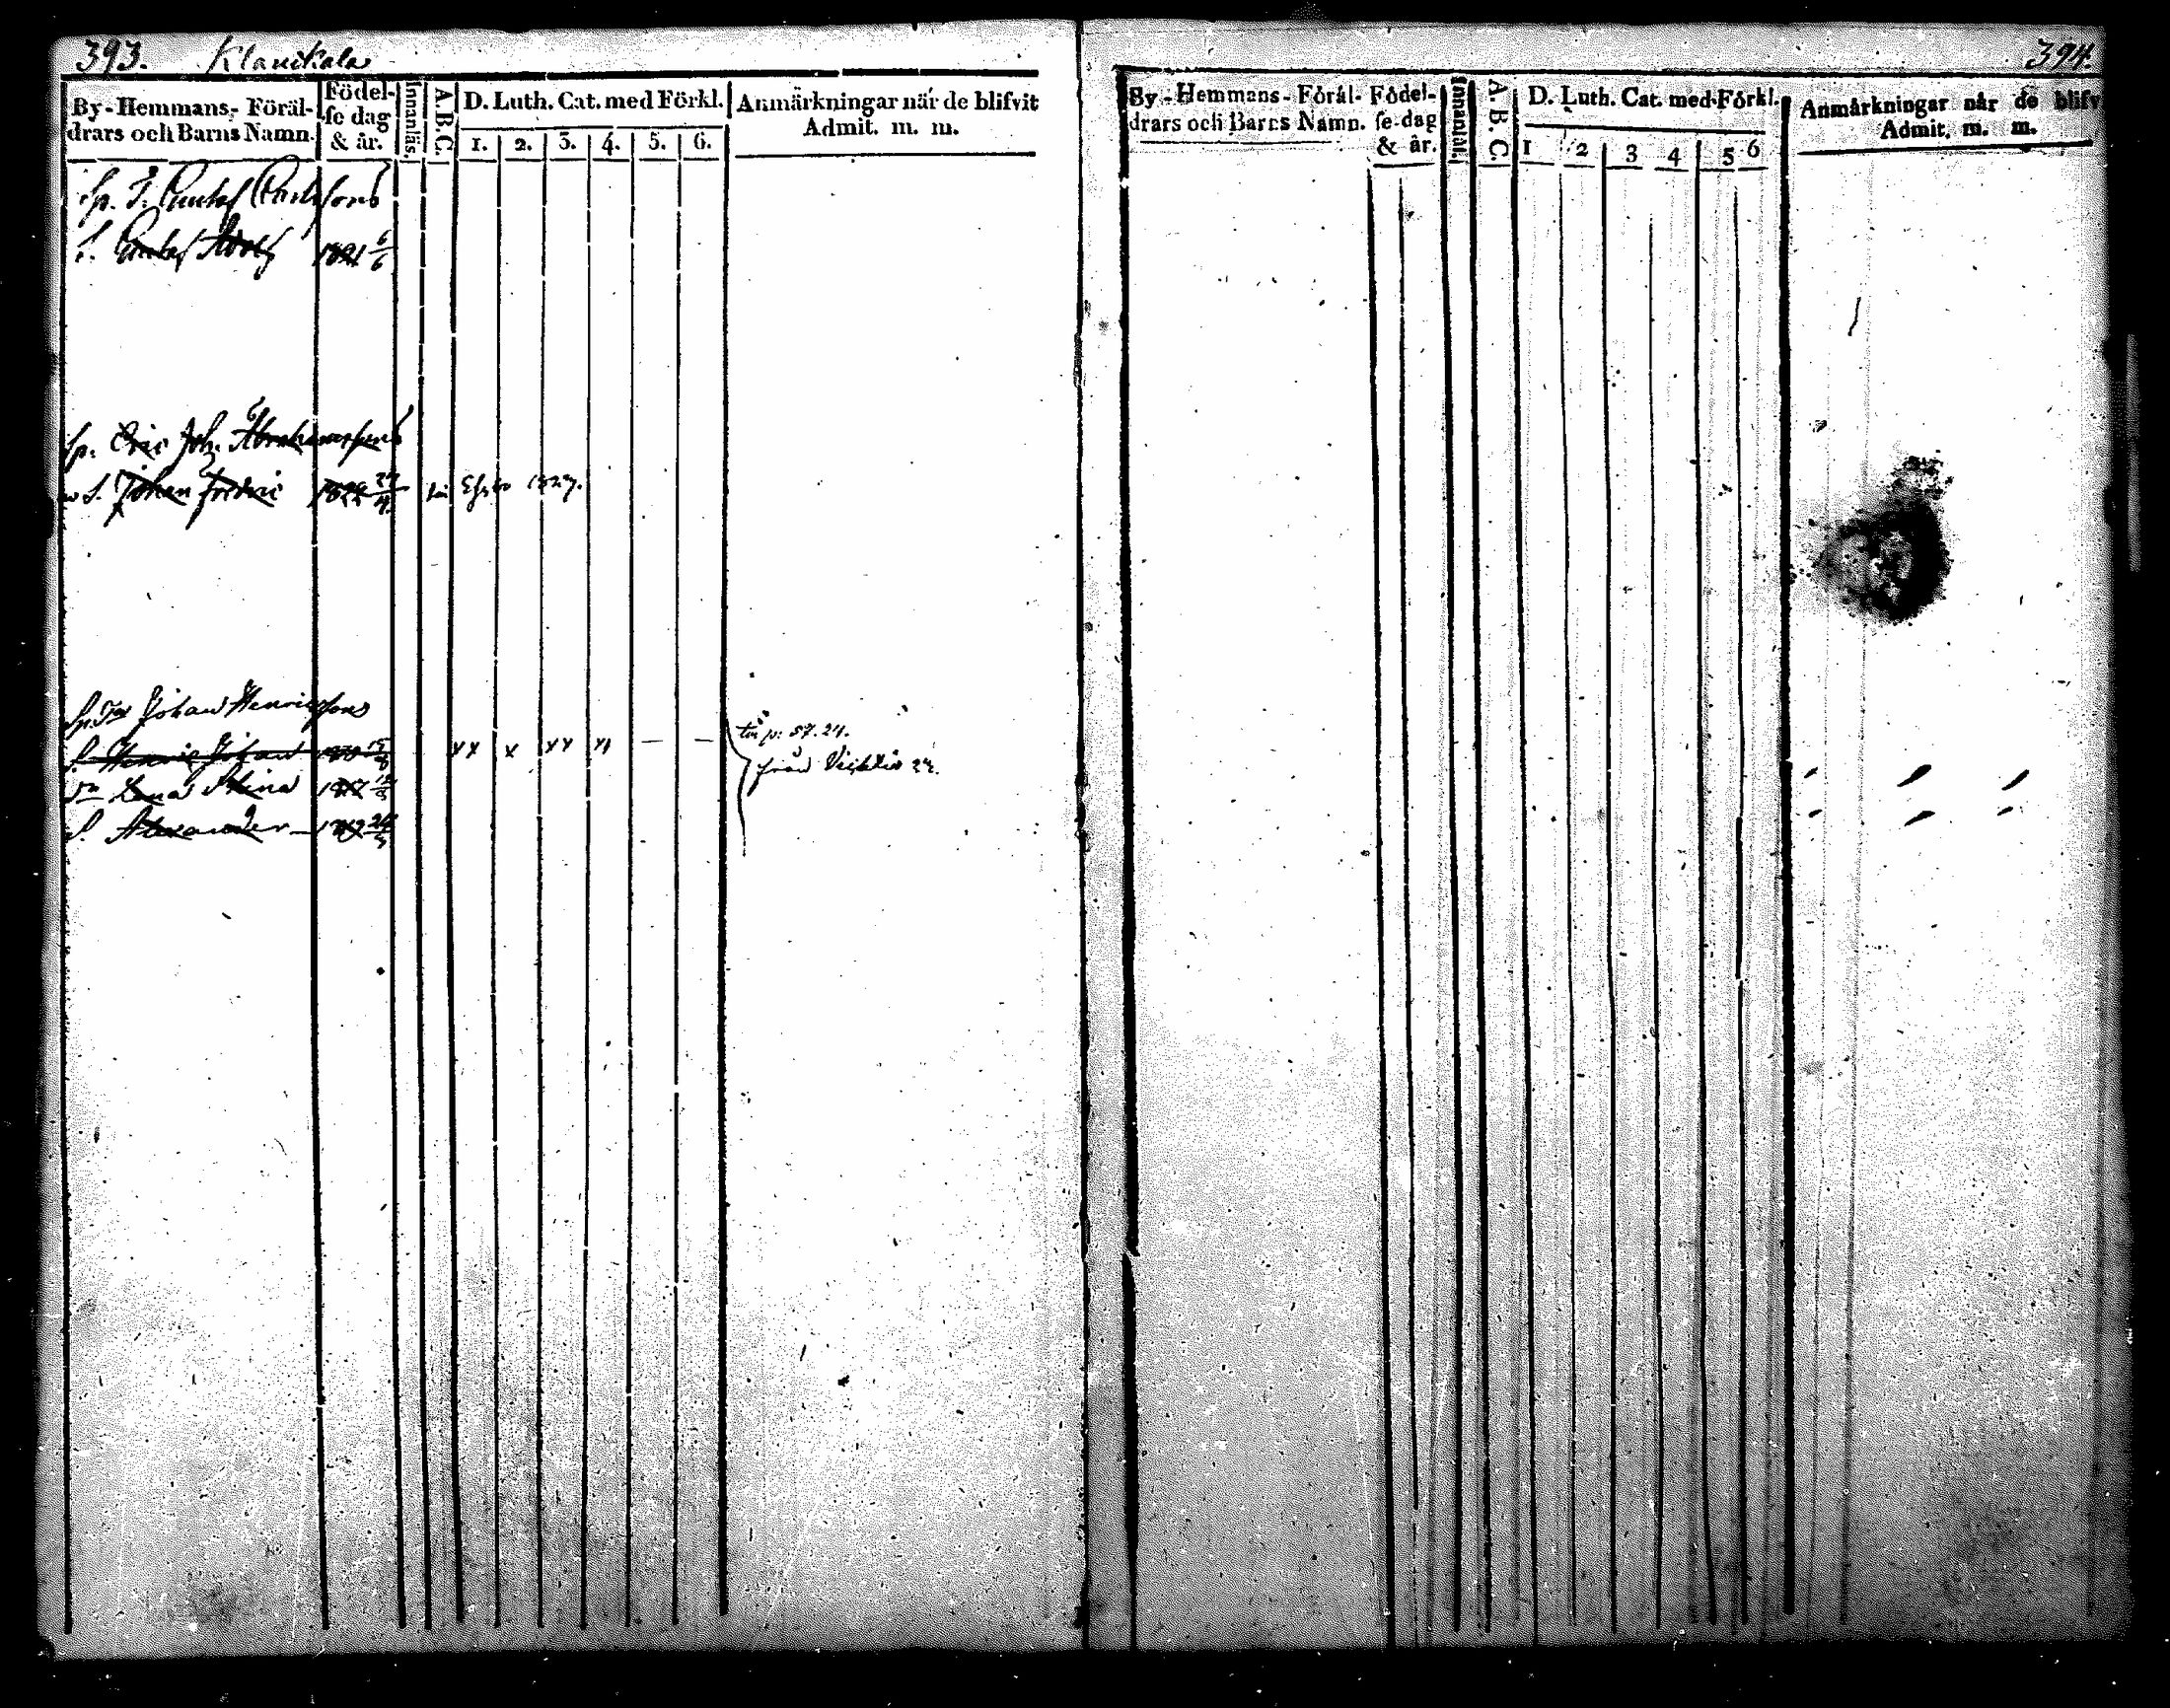 393. Klauckala
By-Hemmans- Föräl-
drars och Barns Namn.
Födel-
se dag
& år.
Innanläs.
A.B.C.
D. Luth. Cat. med Förkl.
1. 2. 3. 4. 5. 6.
Anmärkningar när de blifvit
Admit. m. m.
Sp. T. Gustaf Carlssons
S. Gustaf Adolf 1821 6/6
Sp. Eric Joh. Abrahamssons
S. Johan Fredric
till Esbo 1827.
Johan Henricssons
S. Henric Johan xx x xx — —
Lena Stina 1817
S. Alexander
till p. 57. 24.
från 24.
394.
By-Hemmans-Föräl-
drars och Barns Namn.
Födel-
se-dag
& år.
Innanläs.
A.B.C.
D. Luth. Cat. med Förkl.
1 2 3 4 5 6
Anmärkningar når de blifv
Admit. m. m.